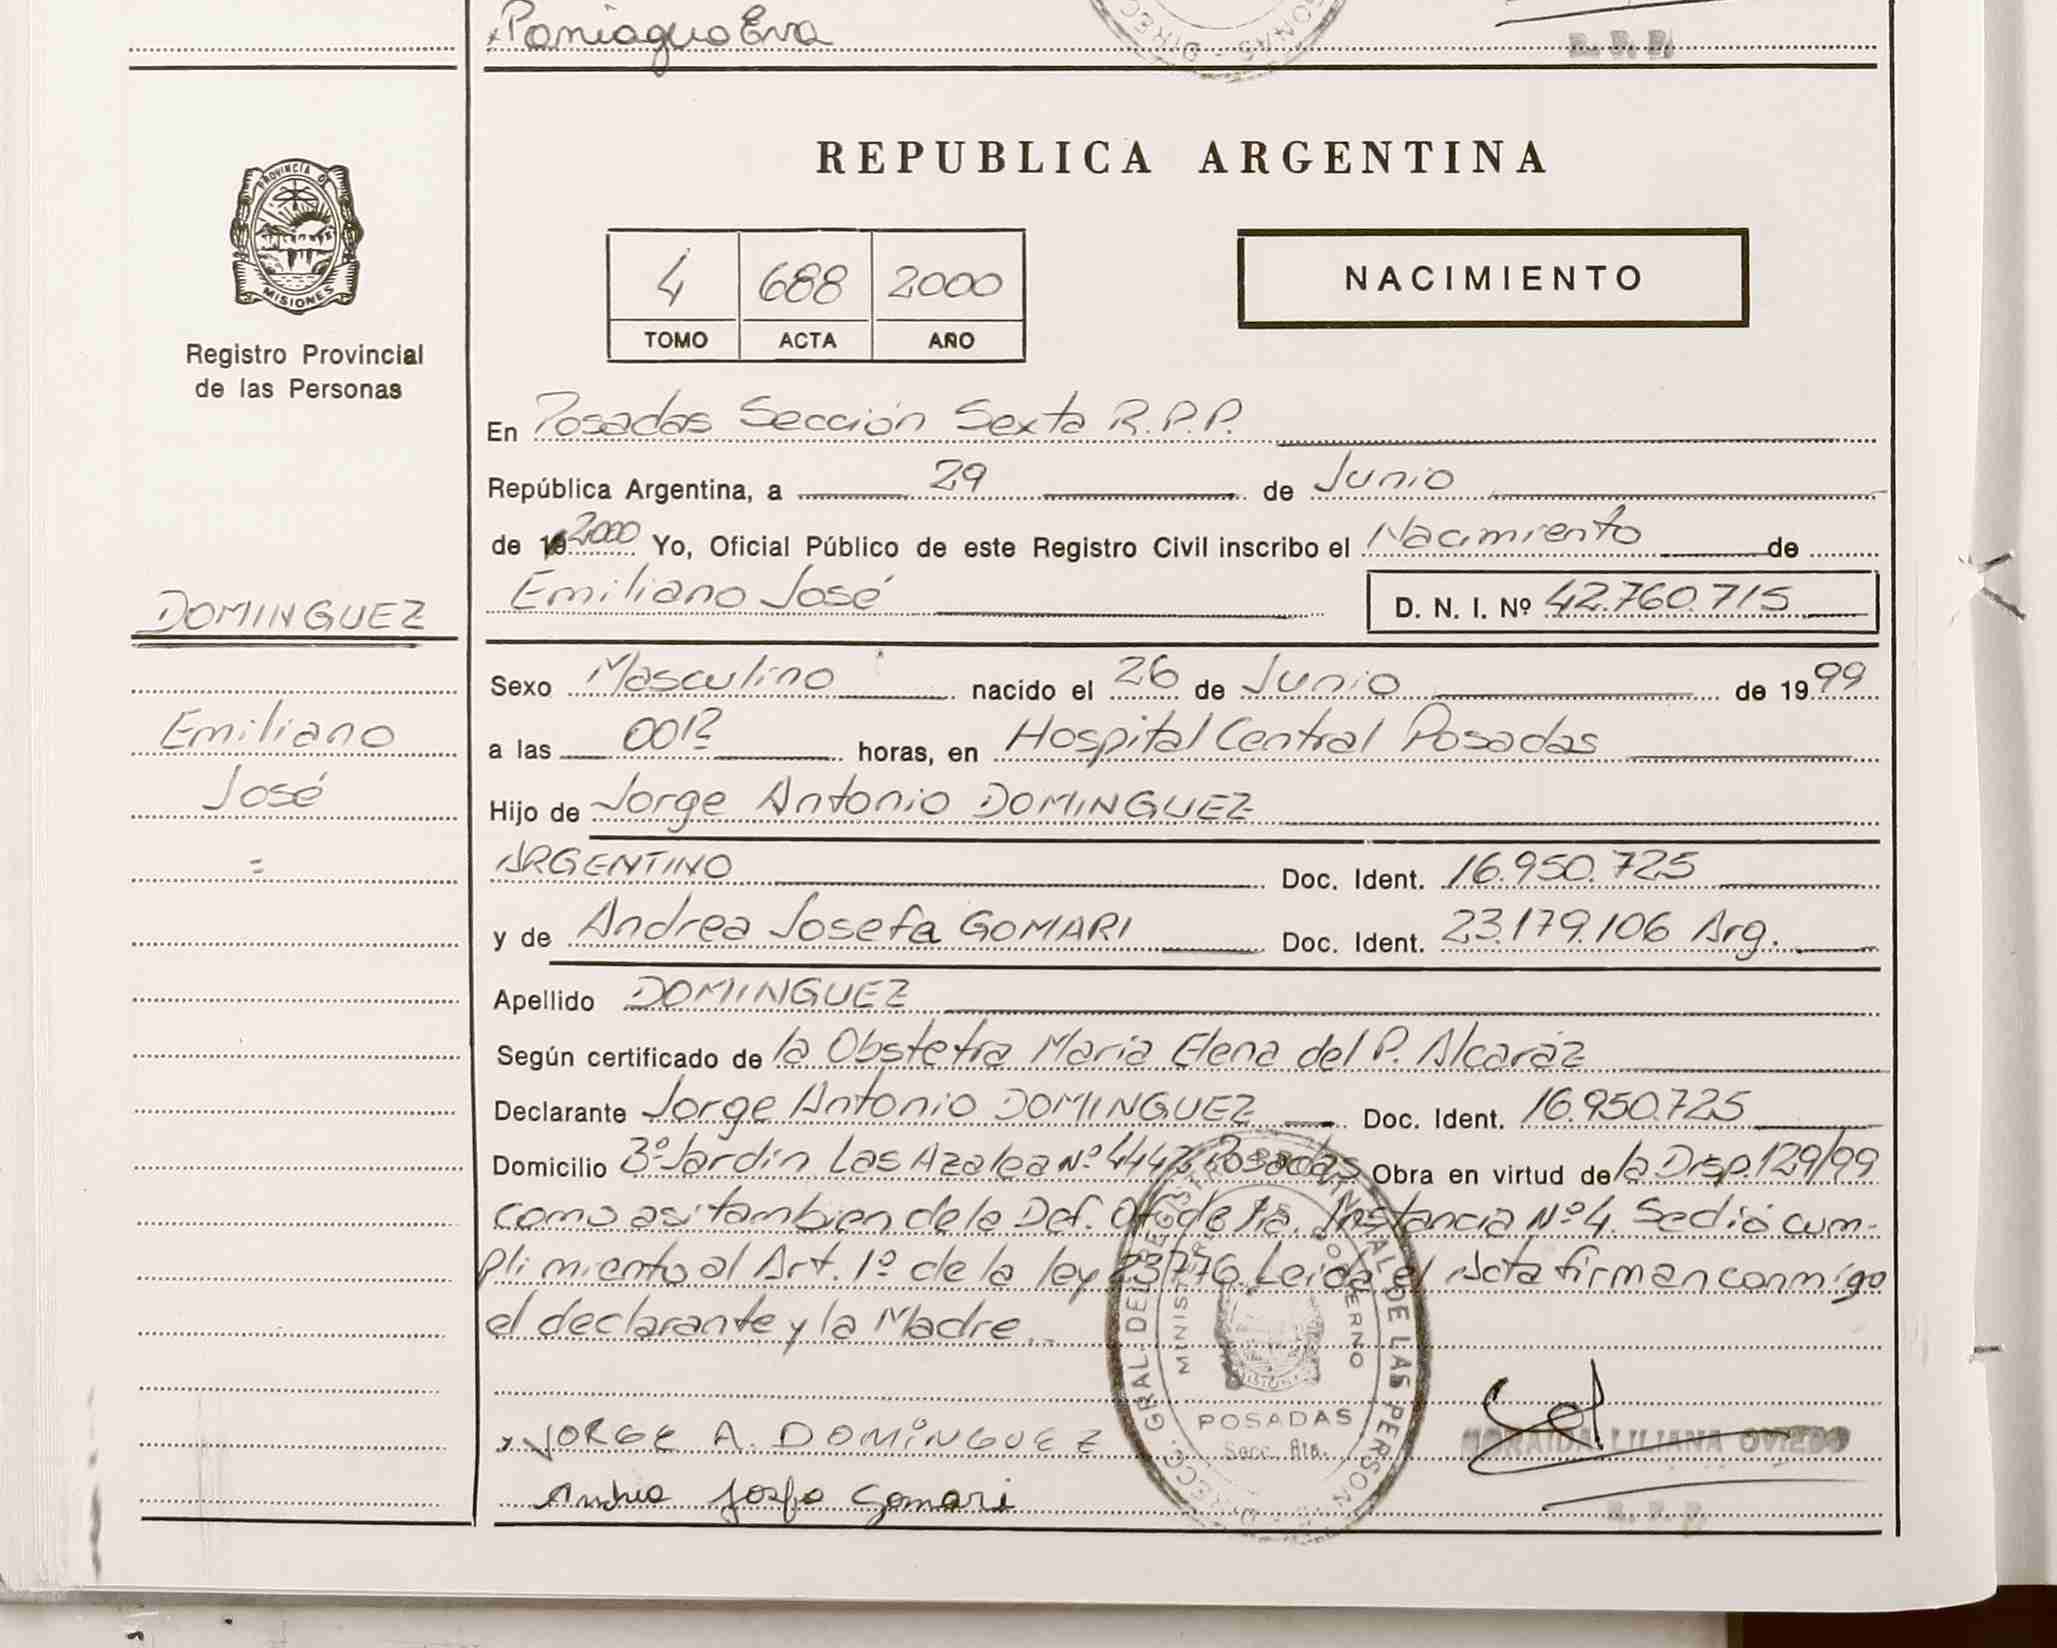 Paniagua Eva
REPUBLICA ARGENTINA
PROVINCIA DE
MISIONES
Registro Provincial
de las Personas
4 688 2000
TOMO ACTA AÑO
NACIMIENTO
En Posadas Sección Sexta R.P.P.
República Argentina, a 29 de Junio
de 19 2000 Yo, Oficial Público de este Registro Civil inscribo el Nacimiento de
Emiliano José D. N. I. Nº 42.760.715
DOMINGUEZ
Emiliano
José
=
Sexo Masculino nacido el 26 de Junio de 1999
a las horas, en Hospital Central Posadas
Hijo de Jorge Antonio DOMINGUEZ
ARGENTINO Doc. Ident. 16.950.725
y de Andrea Josefa GOMARI Doc. Ident. 23.179.106 Arg.
Apellido DOMINGUEZ
Según certificado de la Obstetra Maria Elena del P. Alcaráz
Declarante Jorge Antonio DOMINGUEZ Doc. Ident. 16.950.725
Domicilio 3º Jardín Las Azalea Nº Posadas Obra en virtud de la Disp. 129/99
como asi tambien de la Def. Of. de 1ra. Instancia Nº 4. Se dió cum-
plimiento al Art. 1º de la ley 23776. Leida el Acta firman conmigo
el declarante y la Madre.
JORGE A. DOMÍNGUEZ
Andrea Josefa Gomari
DIRECC. GRAL. DEL REGISTRO PROVINCIAL DE LAS PERSONAS
MINISTERIO DE GOBIERNO
POSADAS
Secc. 6ta.
LILIANA OVIEDO